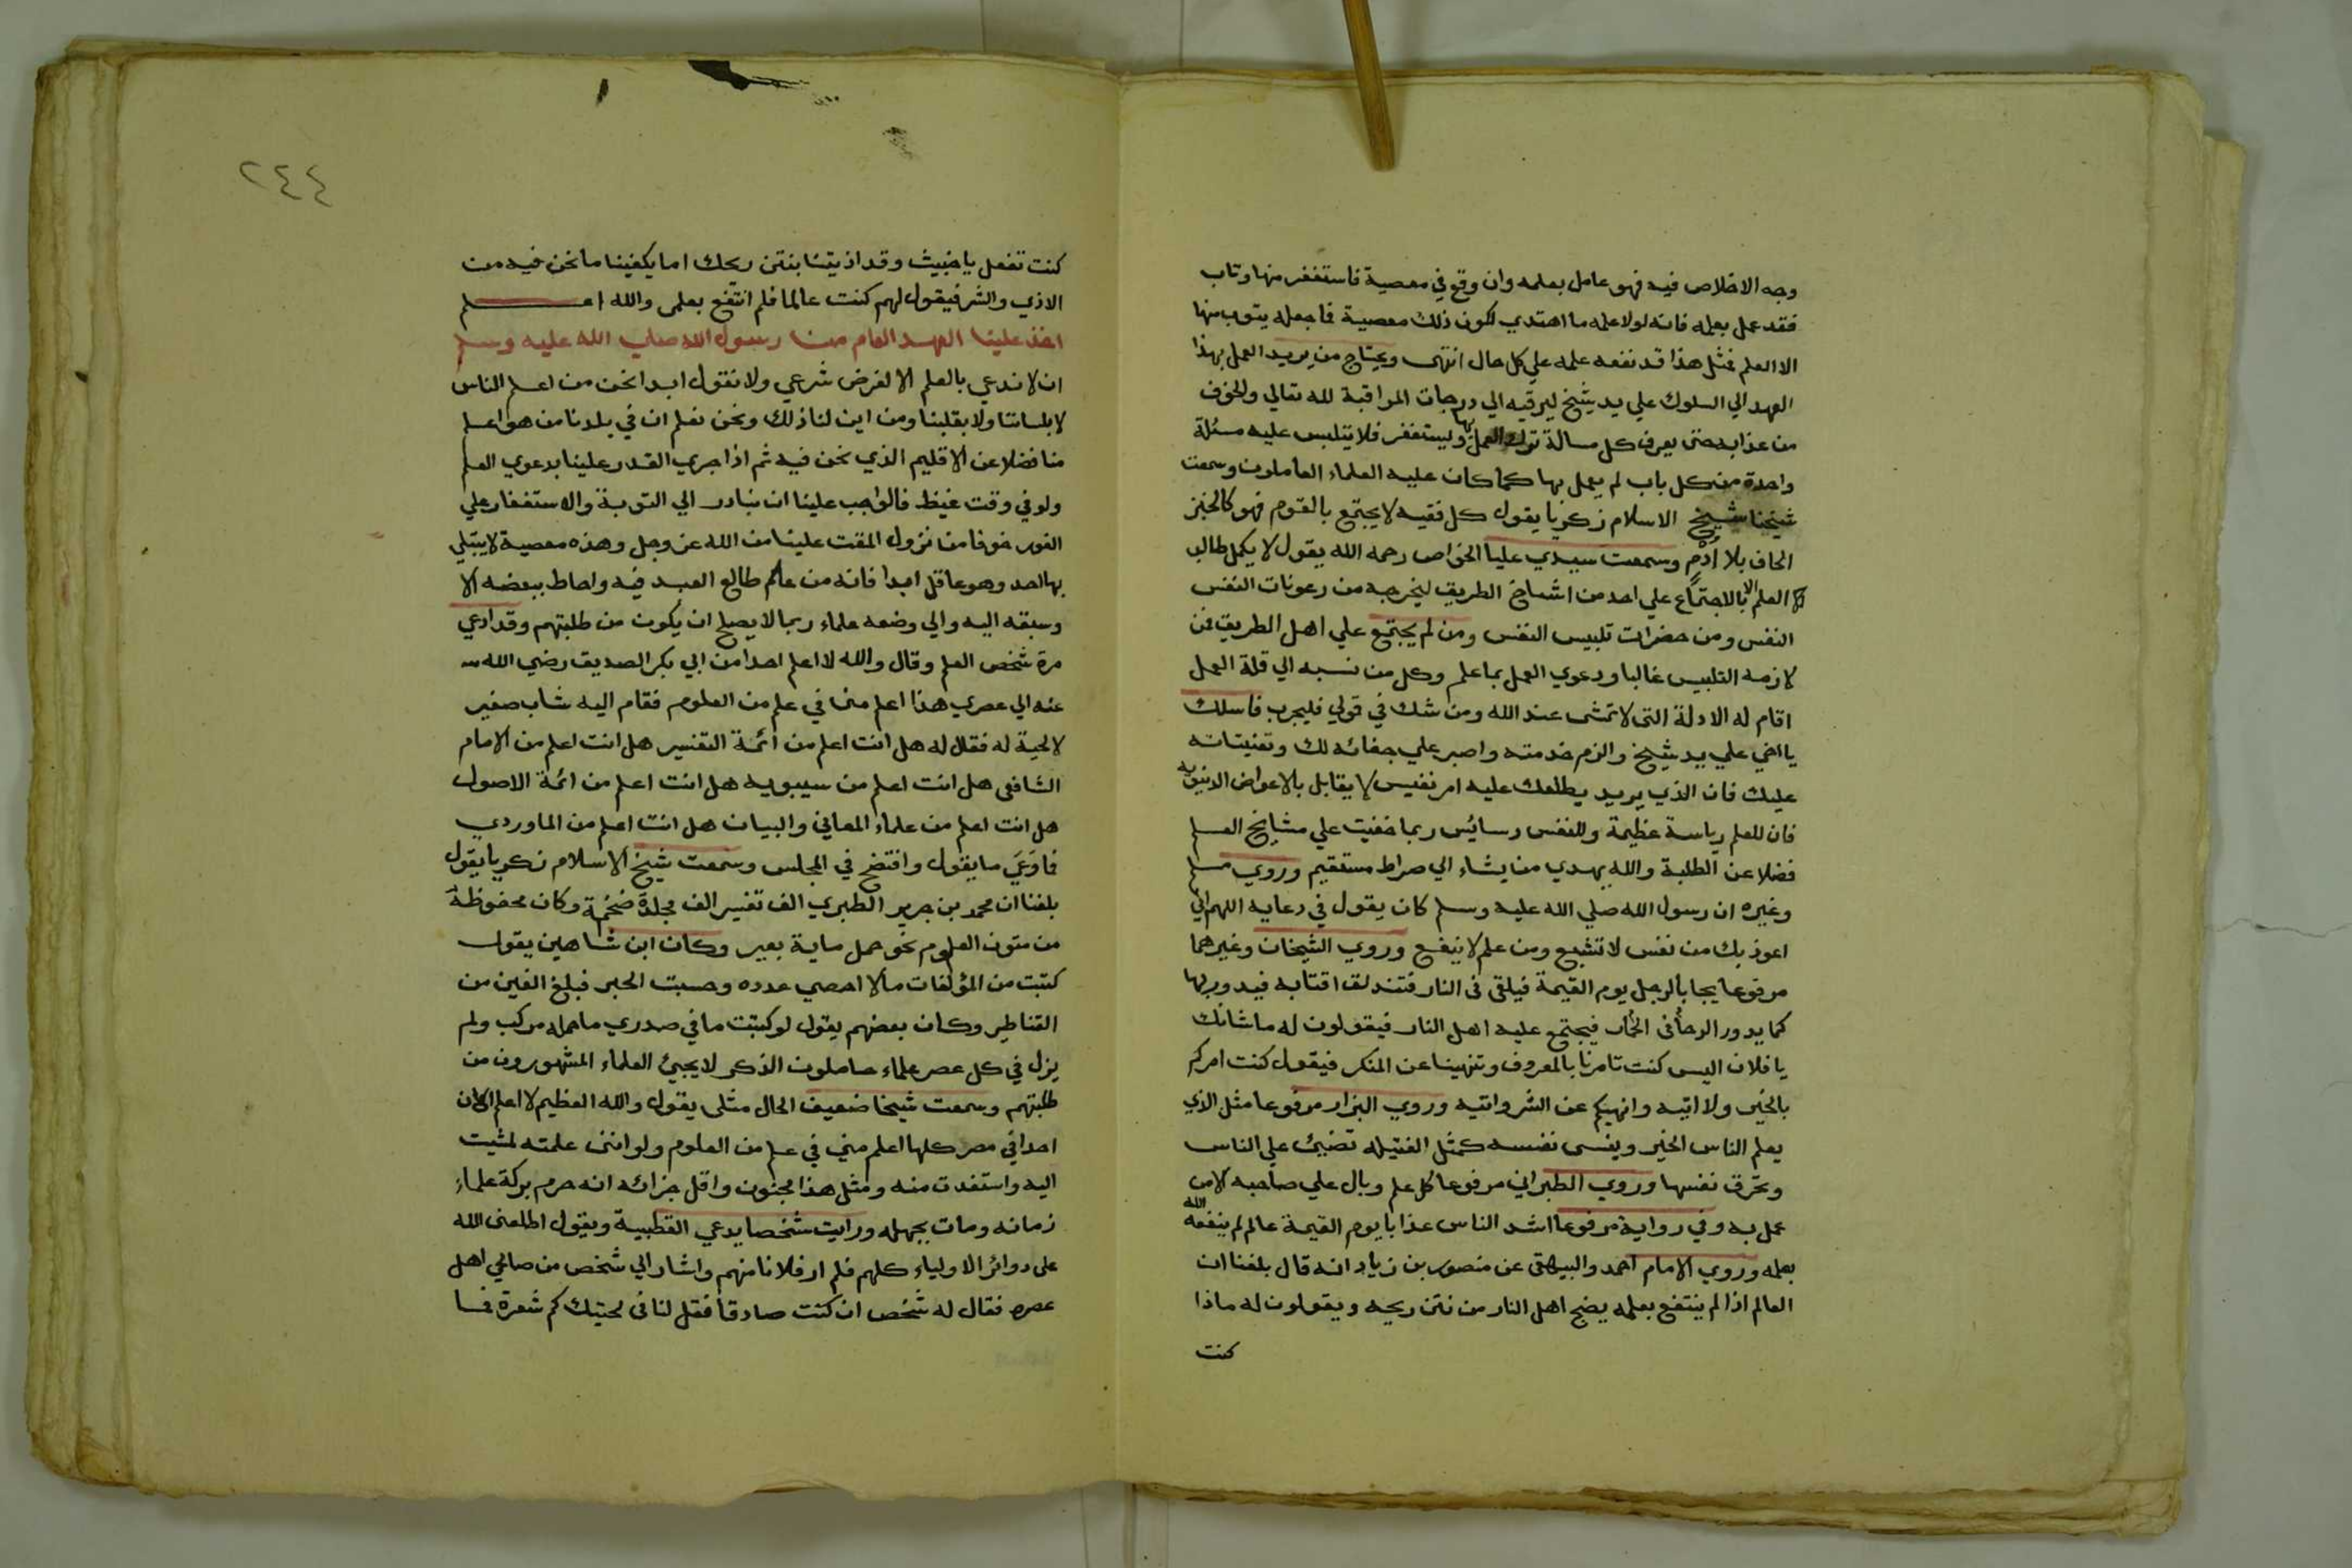 وجه الاخلاص فيه فهو عامل بعلمه وان وقع في معصية فاستغفر منها وتاب
فقد عمل بعلمه فانه لولا علمه ما اهتدي لكون ذلك معصية فاجعله يتوب منها
الا العلم فمثل هذا قد نفعه علمه علي كل حال انتهى ويحتاج من يريد العمل بهذا
العهد الي السلوك علي يد شيخ ليرقيه الي درجات المراقبة لله تعالي والخوف
من عذابه حتى يعرف كل مسالة ترك العمل بها وليستغفر فلا يتلبس عليه مسئلة
واحدة من كل باب لم يعمل بها كما كان عليه العلماء العاملون وسمعت
شيخنا شيخ الاسلام زكريا يقول كل فقيه لا يجتمع بالقوم فهو كالخبز
الحاف بلا ادم وسمعت سيدي عليا الخواص رحمه الله يقول لا يكمل طالب
العلم الا بالاجتماع علي احد من اشياخ الطريق ليخرجه من رعونات النفس
النفس ومن حضرات تلبيس النفس ومن لم يجتمع علي اهل الطريق فمن
لازمه التلبيس غالبا ودعوي العمل بما علم وكل من نسبه الي قلة العمل
اقام له الادلة التى لا تمشى عند الله ومن شك في قولي فليجرب فاسلك
يا اخي علي يد شيخ والزم خدمته واصبر علي جفائه لك وتغنيتاته
عليك فان الذي يريد يطلعك عليه امر نفيس لا يقابل بالاعواض الدنيويه
فان للعلم رياسة عظيمة وللنفس دسائس ربما خفيت علي مشايخ العلم
فضلا عن الطلبة والله يهدي من يشاء الي صراط مستقيم وروي مسلم
وغيره ان رسول الله صلي الله عليه وسلم كان يقول في دعايه اللهم اني
اعوذ بك من نفس لا تشبع ومن علم لا ينفع وروي الشيخان وغيرهما
مرفوعا يجا بالرجل يوم القيمة فيلقى فى النار فتندلق اقتابه فيدور بها
كما يدور الرحا فيجتمع عليه اهل النار فيقولون له ما شانك
يا فلان اليس كنت تامرنا بالمعروف وتنهينا عن المنكر فيقول كنت امركم
بالخير ولا اتيه وانهيكم عن الشر واتيه وروي البزار مرفوعا مثل الذي
يعلم الناس الخير وينسى نفسه كمثل الفتيله تضيئ علي الناس
وتحرق نفسها وروي الطبراني مرفوعا كل علم وبال علي صاحبه الا من
عمل به وفي رواية مرفوعا اشد الناس عذابا يوم القيمة عالم لم ينفعه الله
بعلمه وروي الامام احمد والبيهقى عن منصور بن زياد انه قال بلغنا ان
العالم اذا لم ينتفع بعلمه يضج اهل النار من نتن ريحه ويقولون له ماذا
كنت
٢٤٤
كنت تفعل يا خبيث وقد اذيتنا بنتن ريحك اما يكفينا ما نحن فيه من
الاذي والشر فيقول لهم كنت عالما فلم انتفع بعلمى والله اعلم
اخذ علينا العهد العام من رسول الله صلي الله عليه وسلم
ان لا ندعي بالعلم الا لغرض شرعي ولا نقول ابدا نحن من اعلم الناس
لا بلساننا ولا بقلبنا ومن اين لنا ذلك ونحن نعلم ان في بلدنا من هو اعلم
منا فضلا عن الاقليم الذي نحن فيه ثم اذا جري القدر علينا بدعوي العلم
ولو في وقت غيظ فالواجب علينا ان نبادر الي التوبة والاستغفار علي
الفور خوفا من نزول المقت علينا من الله عز وجل وهذه معصية لا يبتلي
بها احد وهو عاقل ابدا فانه من علم طالع العبد فيه واحاط ببعضه الا
وسبقه اليه والي وضعه علماء ربما لا يصلح ان يكون من طلبتهم وقد ادعي
مرة شخص العلم وقال والله لا اعلم احدا من ابي بكر الصديق رضي الله
عنه الي عصري هذا اعلم منى في علم من العلوم فقام اليه شاب صغير
لا لحية له فقال له هل انت اعلم من ائمة التفسير هل انت اعلم من الامام
الشافعى هل انت اعلم من سيبويه هل انت اعلم من ائمة الاصول
هل انت اعلم من علماء المعاني والبيان هل انت اعلم من الماوردي
فا وعي ما يقول وافتضح في المجلس وسمعت شيخ الاسلام زكريا يقول
بلغنا ان محمد بن جرير الطبري الف تفسير الف مجلدة ضخمة وكان محفوظه
من متون العلوم نحو حمل ماية بعير وكان ابن شاهين يقول
كتبت من المؤلفات ما لا احصي عدده وحسبت الحبر فبلغ الفين من
القناطير وكان بعضهم يقول لو كتبت ما في صدري ما حمله مركب ولم
يزل في كل عصر علماء حاملون الذكر لا يجيئ العلماء المشهورون من
طلبتهم وسمعت شيخا ضعيف الحال مثلى يقول والله العظيم لا اعلم الان
احدا في مصر كلها اعلم مني في علم من العلوم ولو اننى علمته لمشيت
اليه واستفدت منه ومثل هذا مجنون واقل جزائه انه حرم بركة علماء
زمانه ومات بجهله ورايت شخصا يدعي القطبية ويقول اطلعنى الله
على دوائر الاولياء كلهم فلم ار فلانا منهم واشار الي شخص من صالحي اهل
عصره فقال له شخص ان كنت صادقا فقل لنا فى لحيتك كم شعرة فما